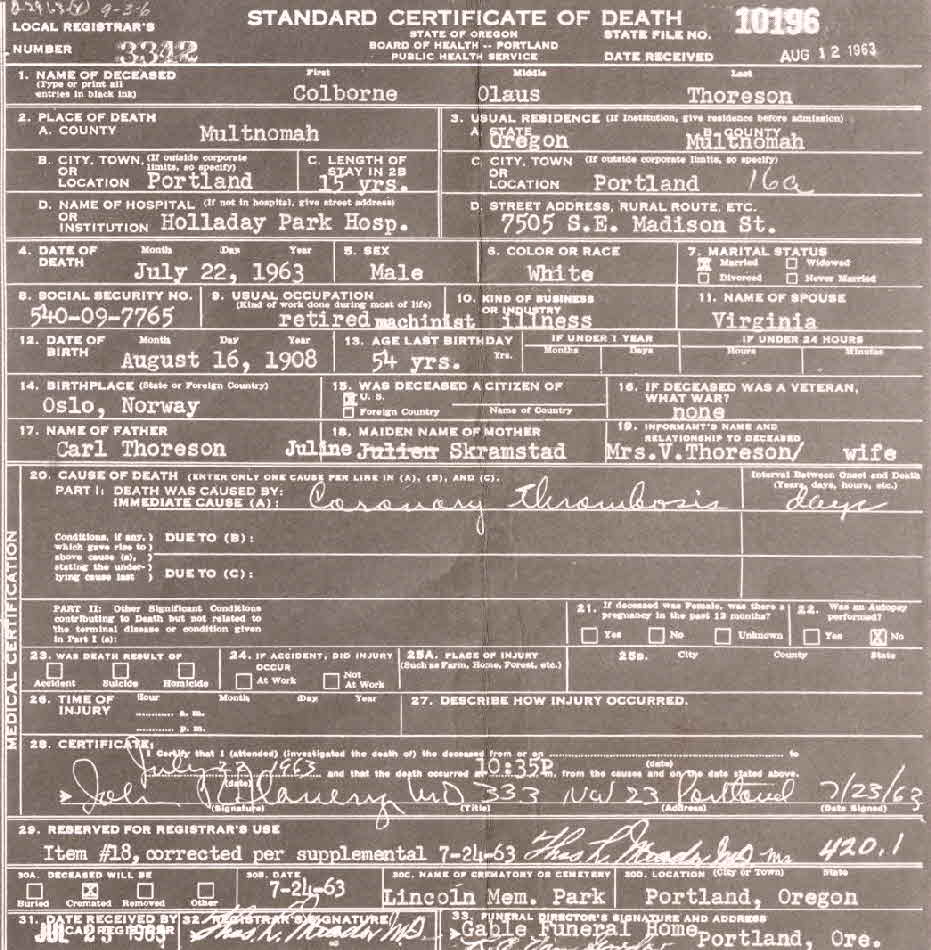 9-3-6
STANDARD CERTIFICATE OF DEATH
STATE OF OREGON
BOARD OF HEALTH -- PORTLAND
PUBLIC HEALTH SERVICE
LOCAL REGISTRAR'S
NUMBER 3342
STATE FILE NO. 10196
DATE RECEIVED AUG 12 1963
1. NAME OF DECEASED
(Type or print all
entries in black ink)
First Middle Last
Colborne Olaus Thoreson
2. PLACE OF DEATH
A. COUNTY Multnomah
3. USUAL RESIDENCE (If Institution, give residence before admission)
A. STATE Oregon B. COUNTY Multnomah
B. CITY, TOWN, (If outside corporate
OR limits, so specify)
LOCATION Portland
C. LENGTH OF
STAY IN 2B
15 yrs.
C. CITY, TOWN (If outside corporate limits, so specify)
OR
LOCATION Portland 16a
D. NAME OF HOSPITAL (If not in hospital, give street address)
OR
INSTITUTION Holladay Park Hosp.
D. STREET ADDRESS, RURAL ROUTE, ETC.
7505 S.E. Madison St.
4. DATE OF Month Day Year
DEATH July 22, 1963
5. SEX
Male
6. COLOR OR RACE
White
7. MARITAL STATUS
X Married Widowed
Divorced Never Married
8. SOCIAL SECURITY NO.
540-09-7765
9. USUAL OCCUPATION
(Kind of work done during most of life)
retired machinist
10. KIND OF BUSINESS
OR INDUSTRY
illness
11. NAME OF SPOUSE
Virginia
12. DATE OF Month Day Year
BIRTH August 16, 1908
13. AGE LAST BIRTHDAY
54 yrs. Yrs.
IF UNDER 1 YEAR
Months Days
IF UNDER 24 HOURS
Hours Minutes
14. BIRTHPLACE (State or Foreign Country)
Oslo, Norway
15. WAS DECEASED A CITIZEN OF
X U. S.
Foreign Country Name of Country
16. IF DECEASED WAS A VETERAN,
WHAT WAR?
none
17. NAME OF FATHER
Carl Thoreson
18. MAIDEN NAME OF MOTHER
Juline Julien Skramstad
19. INFORMANT'S NAME AND
RELATIONSHIP TO DECEASED
Mrs.V.Thoreson/ wife
MEDICAL CERTIFICATION
20. CAUSE OF DEATH (ENTER ONLY ONE CAUSE PER LINE IN (A), (B), AND (C).
PART I: DEATH WAS CAUSED BY:
IMMEDIATE CAUSE (A): Coronary thrombosis
Interval Between Onset and Death
(Years, days, hours, etc.)
days
Conditions, if any, )
which gave rise to ) DUE TO (B):
above cause (a), )
stating the under- )
lying cause last ) DUE TO (C):
PART II: Other Significant Conditions
contributing to Death but not related to
the terminal disease or condition given
in Part I (a):
21. If deceased was Female, was there a
pregnancy in the past 12 months?
Yes No Unknown
22. Was an Autopsy
performed?
Yes X No
23. WAS DEATH RESULT OF
Accident Suicide Homicide
24. IF ACCIDENT, DID INJURY
OCCUR
At Work Not At Work
25A. PLACE OF INJURY
(Such as Farm, Home, Forest, etc.)
25B. City County State
26. TIME OF Hour Month Day Year
INJURY a. m.
p. m.
27. DESCRIBE HOW INJURY OCCURRED.
28. CERTIFICATE:
I Certify that I (attended) (investigated the death of) the deceased from or on to
(date)
July 22 1963 and that the death occurred at 10:35P m. from the causes and on the date stated above.
(date)
John MD 333 NW 23 Portland 7/23/63
(Signature) (Title) (Address) (Date Signed)
29. RESERVED FOR REGISTRAR'S USE
Item #18, corrected per supplemental 7-24-63 Thos L. Meador MD ms 420.1
30A. DECEASED WILL BE
Buried X Cremated Removed Other
30B. DATE
7-24-63
30C. NAME OF CREMATORY OR CEMETERY
Lincoln Mem. Park
30D. LOCATION (City or Town) State
Portland, Oregon
31. DATE RECEIVED BY
LOCAL REGISTRAR
JUL 25 1963
32. REGISTRAR'S SIGNATURE
Thos L. Meador MD
33. FUNERAL DIRECTOR'S SIGNATURE AND ADDRESS
Gable Funeral Home Portland, Ore.